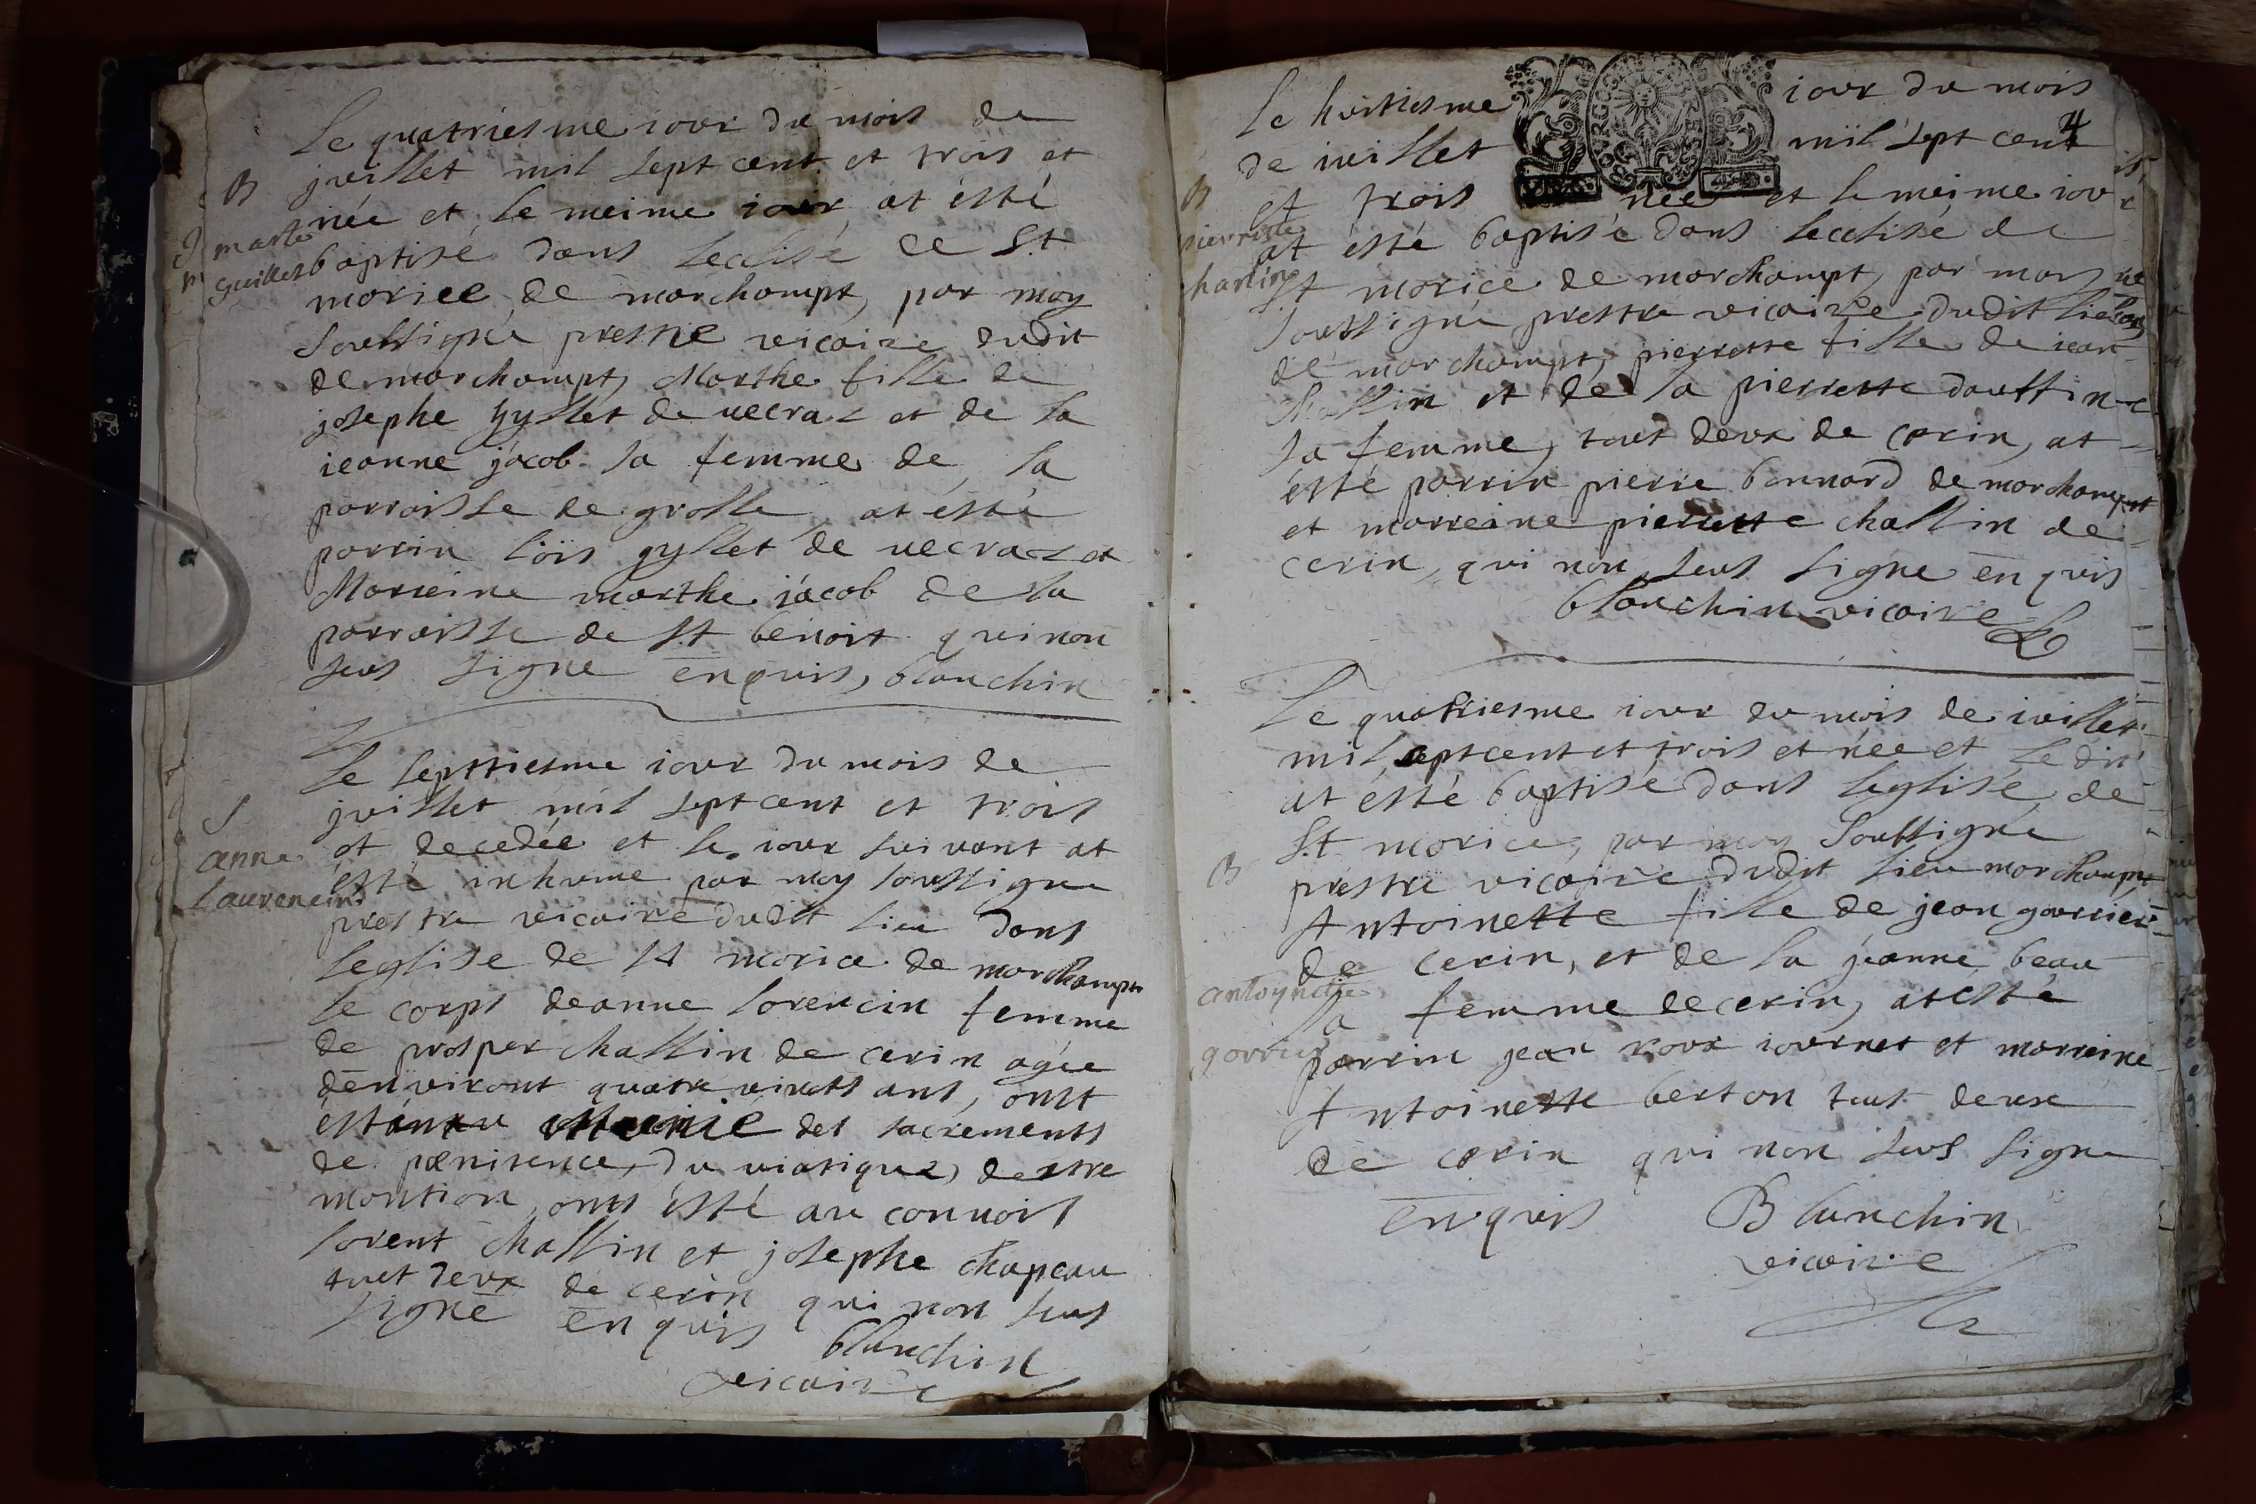 Le quatriesme iour du mois de
B juillet mil sept cent et trois et
née et le meime iour at ésté
marte
guillet
baptisé dans leclise de St
morice de marchampt, par moy
Soubsigné prestre vicaire dudit
de marchampt, Marthe fille de
josephe gyllet de uecraz et de la
ieanne jacob sa femme de la
parroisse de grolle at ésté
parrin loïs gyllet de uecraz et
Marreine marthe jacob de la
parroisse de St benoit qui non
seus signe enquis, blanchin
Le septtiesme iour du mois de
S juillet mil sept cent et trois
anne
laurencin
et decedée et le iour suivant at
ésté inhume par moy soussigne
prestre vicaire dudit lieu dans
leglise de St morice de marchampt
le corps deanne lorencin femme
de prosper challin de cerin agée
denviront quatre vints ans, onst
des sacrements
de pœnitence, du viatique, destre
montion, onts ésté au convois
lorent challin et josephe chapeau
tout deux de cerin qui non seus
signé enquis blanchin
vicaire
Le huitiesme iour du mois
de iuillet mil sept cent
4
B et trois née et le meime iour
pierrette
charlin
at ésté baptisé dans leclisé de
St morice de marchampt, par moy
soubsigné prestre vicaire dudit lieu
de marchampt, pierrette fille de iean
challin et de la pierrette douffin
sa femme, tout deux de cerin, at
ésté parrin pierre bonnard de marchampt
et marreine pierrette challin de
cerin, qui non seus signe enquis
blanchin vicaire
Le quatriesme iour du mois de iuillet
mil septcent et trois et née et le dit
at ésté baptisé dans leglisé de
St morice, par moy Soubsigné
B prestre vicaire dudit lieu marchampt
Antoinette fille de jean gorrier
de cerin, et de la jeanne beau
antoynette
gorrier
sa femme de cerin, at esté
parrin jean roux iournet et marreine
Antoinette berton tout deux
de cerin qui non seus signe
enquis Blanchin
vicaire